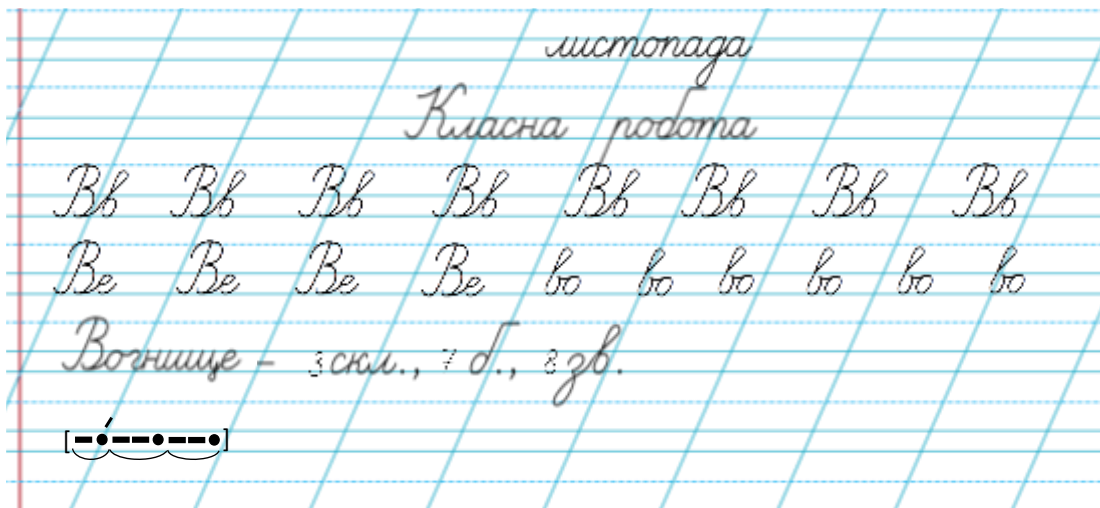 листопада
Класна робота
Вв Вв Вв Вв Вв Вв Вв Вв
Ве Ве Ве Ве во во во во во во
Вогнище – 3 скл., 7 б., 8 зв.
[–•́––•––•]